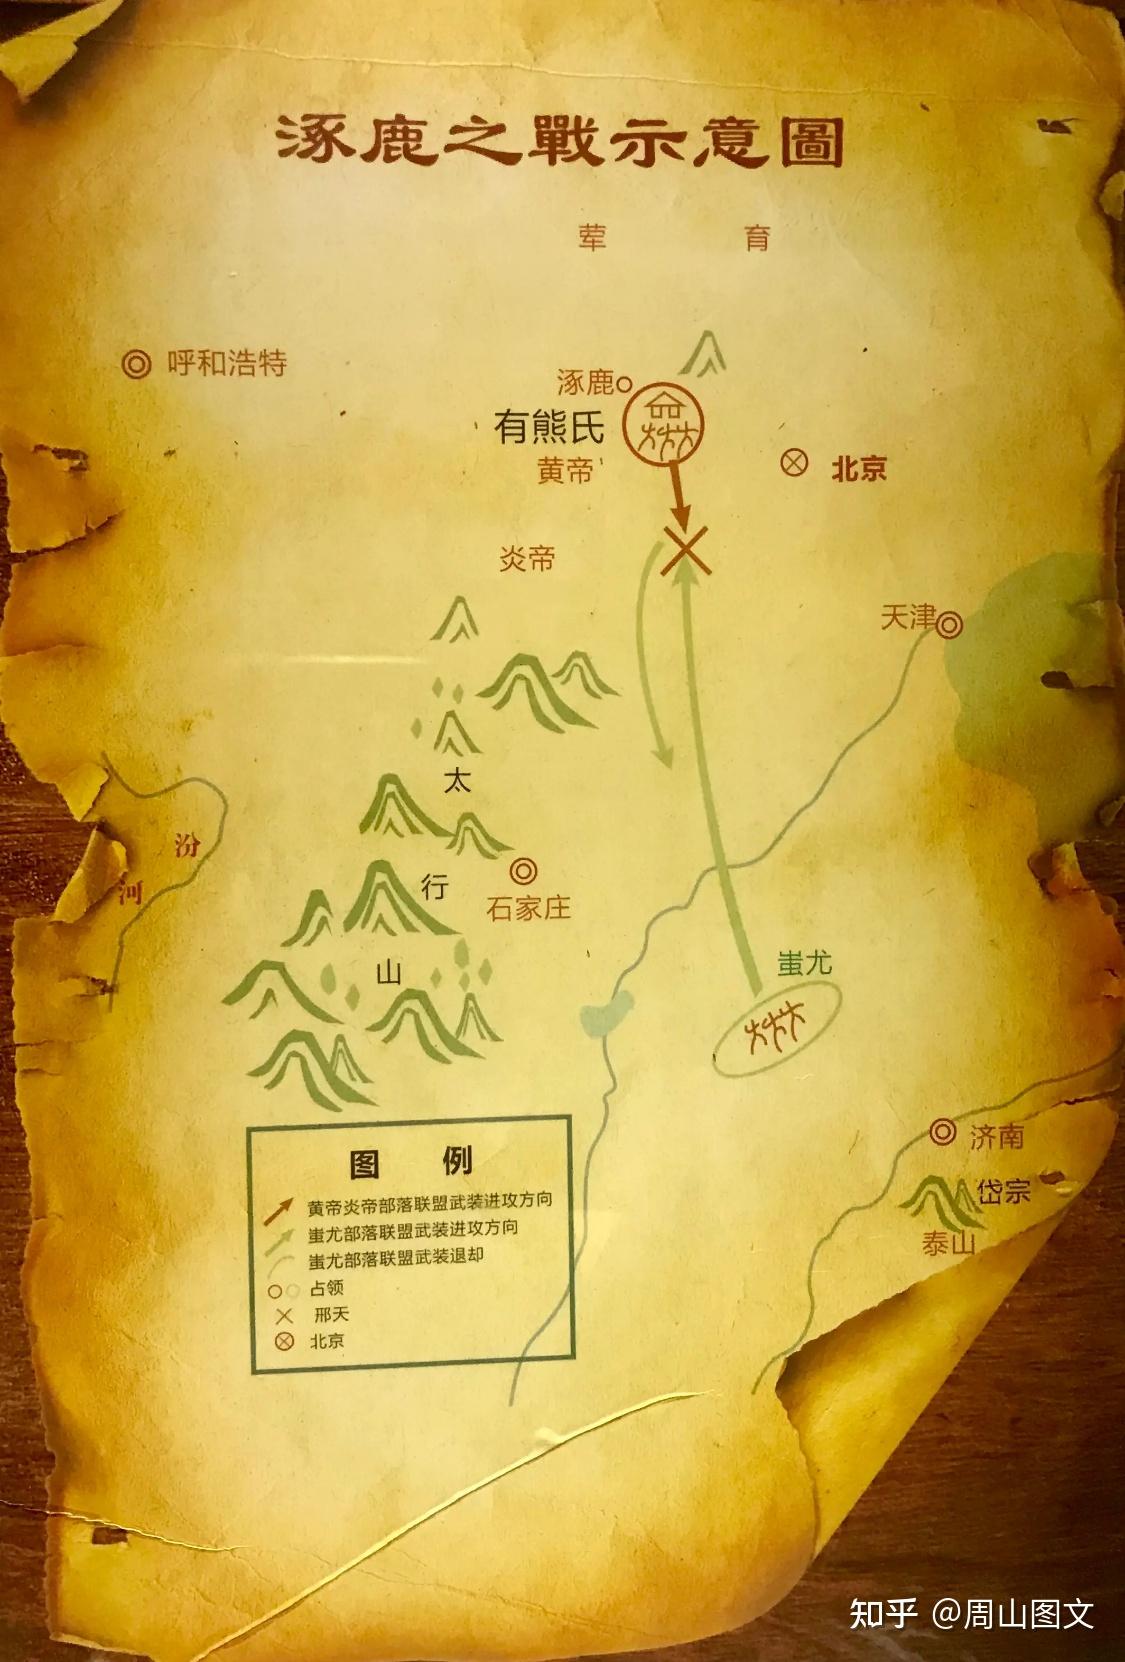 涿鹿之戰示意圖
荤 育
呼和浩特
涿鹿
有熊氏
黄帝
北京
炎帝
天津
太
行
山
汾
河
石家庄
蚩尤
济南
岱宗
泰山
图 例
黄帝炎帝部落联盟武装进攻方向
蚩尤部落联盟武装进攻方向
蚩尤部落联盟武装退却
占领
邢天
北京
知乎 @周山图文